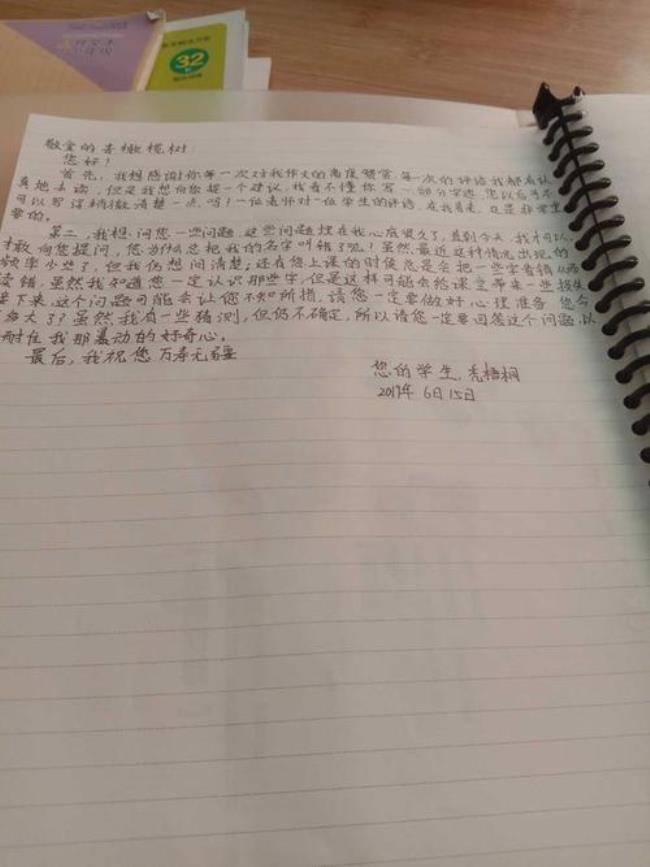 32
敬爱的青橄榄树:
您好!
首先,我想感谢你每一次对我作文的高度赞赏,每一次的评语我都有认
真地去读,但是我想向您提一个建议,我看不懂你写一部分字迹,您以后可不
可以写得稍微清楚一点吗?一位老师对一位学生的评语,在我看来,
要的。
第二,我想问您一些问题,这些问题埋在我心底很久了,直到今天,我才可以,
才敢向您提问,您为什么总把我的名字叫错了呢?虽然最近这种情况出现的
频率少些了,但我仍想问清楚;还有您上课的时候总是会把一些字音错
读错,虽然我知道您一定认识那些字,但是这样可能会给课堂带来一些损失
接下来,这个问题可能会让您不知所措,请您一定要做好心理准备,您今
多大了?虽然我有一些猜测,但仍不确定,所以请您一定要回答这个问题,以
耐住我那暴动的好奇心。
最后,我祝您万寿无疆
您的学生,秃梧桐
2019年6月15日